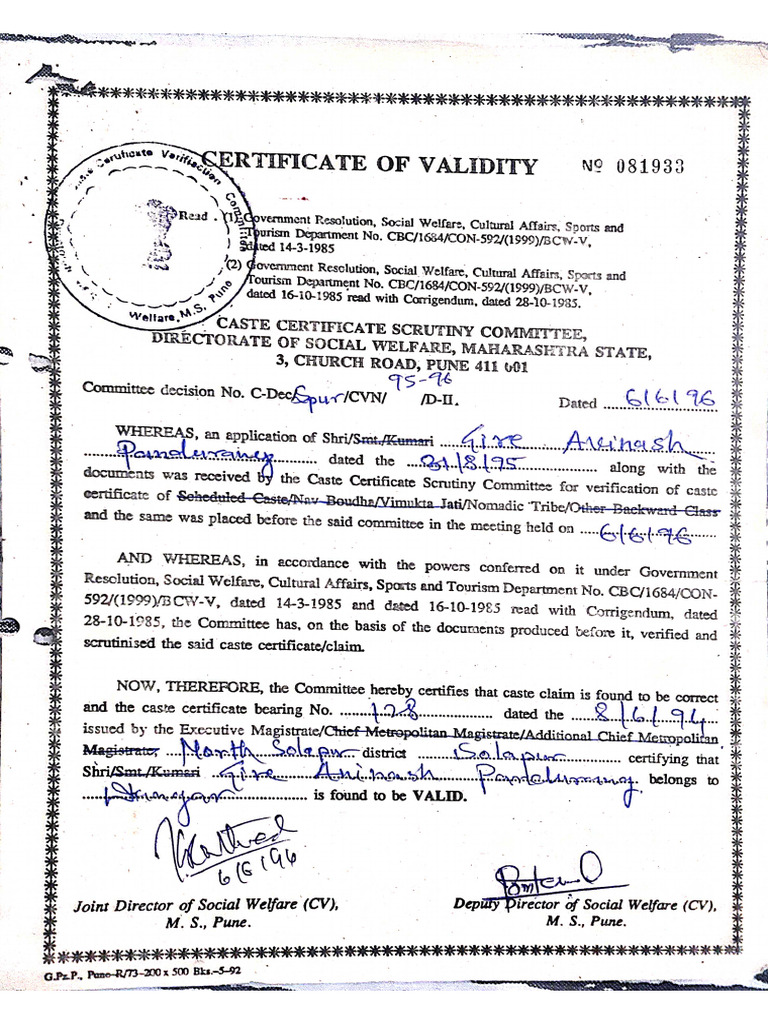 CERTIFICATE OF VALIDITY Nº 081933
Read . (1) Government Resolution, Social Welfare, Cultural Affairs, Sports and
Tourism Department No. CBC/1684/CON-592/(1999)/BCW-V,
dated 14-3-1985
(2) Government Resolution, Social Welfare, Cultural Affairs, Sports and
Tourism Department No. CBC/1684/CON-592/(1999)/BCW-V,
dated 16-10-1985 read with Corrigendum, dated 28-10-1985.
Welfare, M.S. Pune
CASTE CERTIFICATE SCRUTINY COMMITTEE,
DIRECTORATE OF SOCIAL WELFARE, MAHARASHTRA STATE,
3, CHURCH ROAD, PUNE 411 001
Committee decision No. C-Dec/Spur/CVN/ 95-96 /D-II. Dated 6/6/96
WHEREAS, an application of Shri/Smt./Kumari Gire Avinash
Pandurang dated the 31/8/95 along with the
documents was received by the Caste Certificate Scrutiny Committee for verification of caste
certificate of Scheduled Caste/Nav Boudha/Vimukta Jati/Nomadic Tribe/Other Backward Class
and the same was placed before the said committee in the meeting held on 6/6/96
AND WHEREAS, in accordance with the powers conferred on it under Government
Resolution, Social Welfare, Cultural Affairs, Sports and Tourism Department No. CBC/1684/CON-
592/(1999)/BCW-V, dated 14-3-1985 and dated 16-10-1985 read with Corrigendum, dated
28-10-1985, the Committee has, on the basis of the documents produced before it, verified and
scrutinised the said caste certificate/claim.
NOW, THEREFORE, the Committee hereby certifies that caste claim is found to be correct
and the caste certificate bearing No. 128 dated the 8/6/94
issued by the Executive Magistrate/Chief Metropolitan Magistrate/Additional Chief Metropolitan
Magistrate, North Solapur district Solapur certifying that
Shri/Smt./Kumari Gire Avinash Pandurang belongs to
is found to be VALID.
6/6/96
Joint Director of Social Welfare (CV), Deputy Director of Social Welfare (CV),
M. S., Pune. M. S., Pune.
G.Pz.P., Pune-R/73-200 x 500 Bks.-5-92